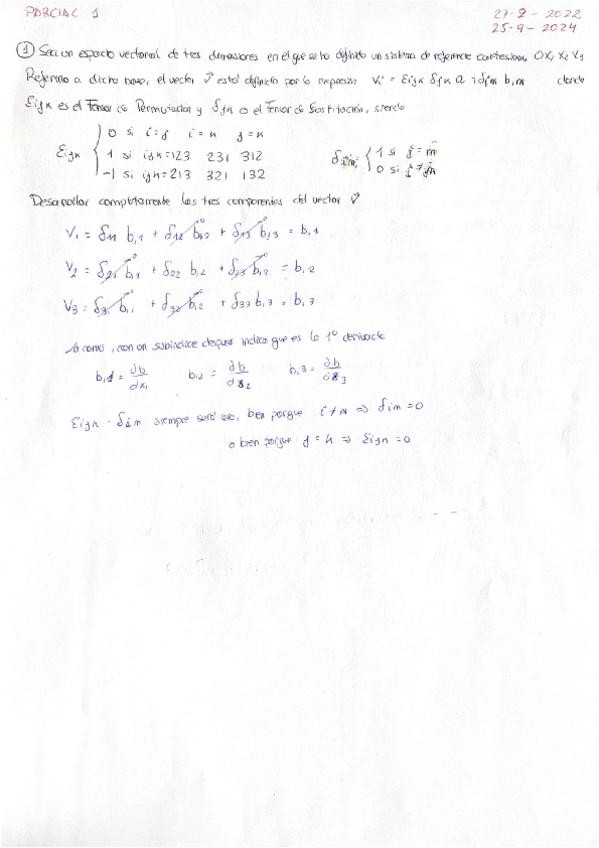 PARCIAL 1
27-2-2022
25-9-2024
① Sea un espacio vectorial de tres dimensiones en el que se ha definido un sistema de referencia cartesiano, OX₁ X₂ X₃
Referido a dicha base, el vector v⃗ está definido por la expresión Vᵢ = εijk δjk a + δim b,m donde
εijk es el Tensor de Permutación y δjk es el Tensor de Sustitución, siendo
εijk { 0 si i=j i=k j=k
1 si ijk=123 231 312
-1 si ijk=213 321 132
δim { 1 si i=m
0 si i≠m
Desarrollar completamente las tres componentes del vector v⃗
V₁ = δ11 b,1 + δ12 b,2 + δ13 b,3 = b,1
V₂ = δ21 b,1 + δ22 b,2 + δ23 b,3 = b,2
V3 = δ31 b,1 + δ32 b,2 + δ33 b,3 = b,3
La coma, con un subíndice después indica que es la 1ª derivada
b,1 = ∂b/∂x1 b,2 = ∂b/∂x2 b,3 = ∂b/∂x3
εijk · δim siempre será cero, bien porque i≠m ⇒ δim=0
o bien porque j=k ⇒ εijk=0